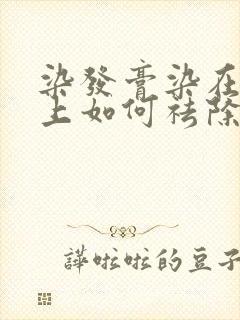 染發膏染在
上如何祛除
譁啦啦的豆子